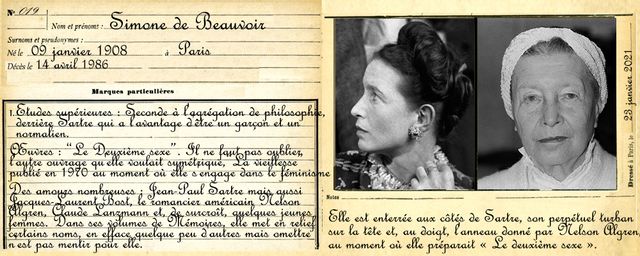 No. 019
Nom et prénoms : Simone de Beauvoir
Surnoms et pseudonymes :
Né le 09 janvier 1908 à Paris
Décès le 14 avril 1986
Marques particulières
1. Etudes supérieures : Seconde à l'agrégation de philosophie,
derrière Sartre qui a l'avantage d'être un garçon et un
normalien.
Œuvres : "Le Deuxième sexe". Il ne faut pas oublier,
l'autre ouvrage qu'elle voulait symétrique, La vieillesse
publié en 1970 au moment où elle s'engage dans le féminisme
Des amours nombreuses : Jean-Paul Sartre mais aussi
Jacques-Laurent Bost, le romancier américain Nelson
Algren, Claude Lanzmann et, de surcroit, quelques jeunes
femmes. Dans ses volumes de Mémoires, elle met en relief
certains noms, en efface quelque peu d'autres mais omettre
n'est pas mentir pour elle.
Dressé à Paris, le 23 janvier 2021
Notes
Elle est enterrée aux côtés de Sartre, son perpétuel turban
sur la tête et, au doigt, l'anneau donné par Nelson Algren,
au moment où elle préparait « Le deuxième sexe ».